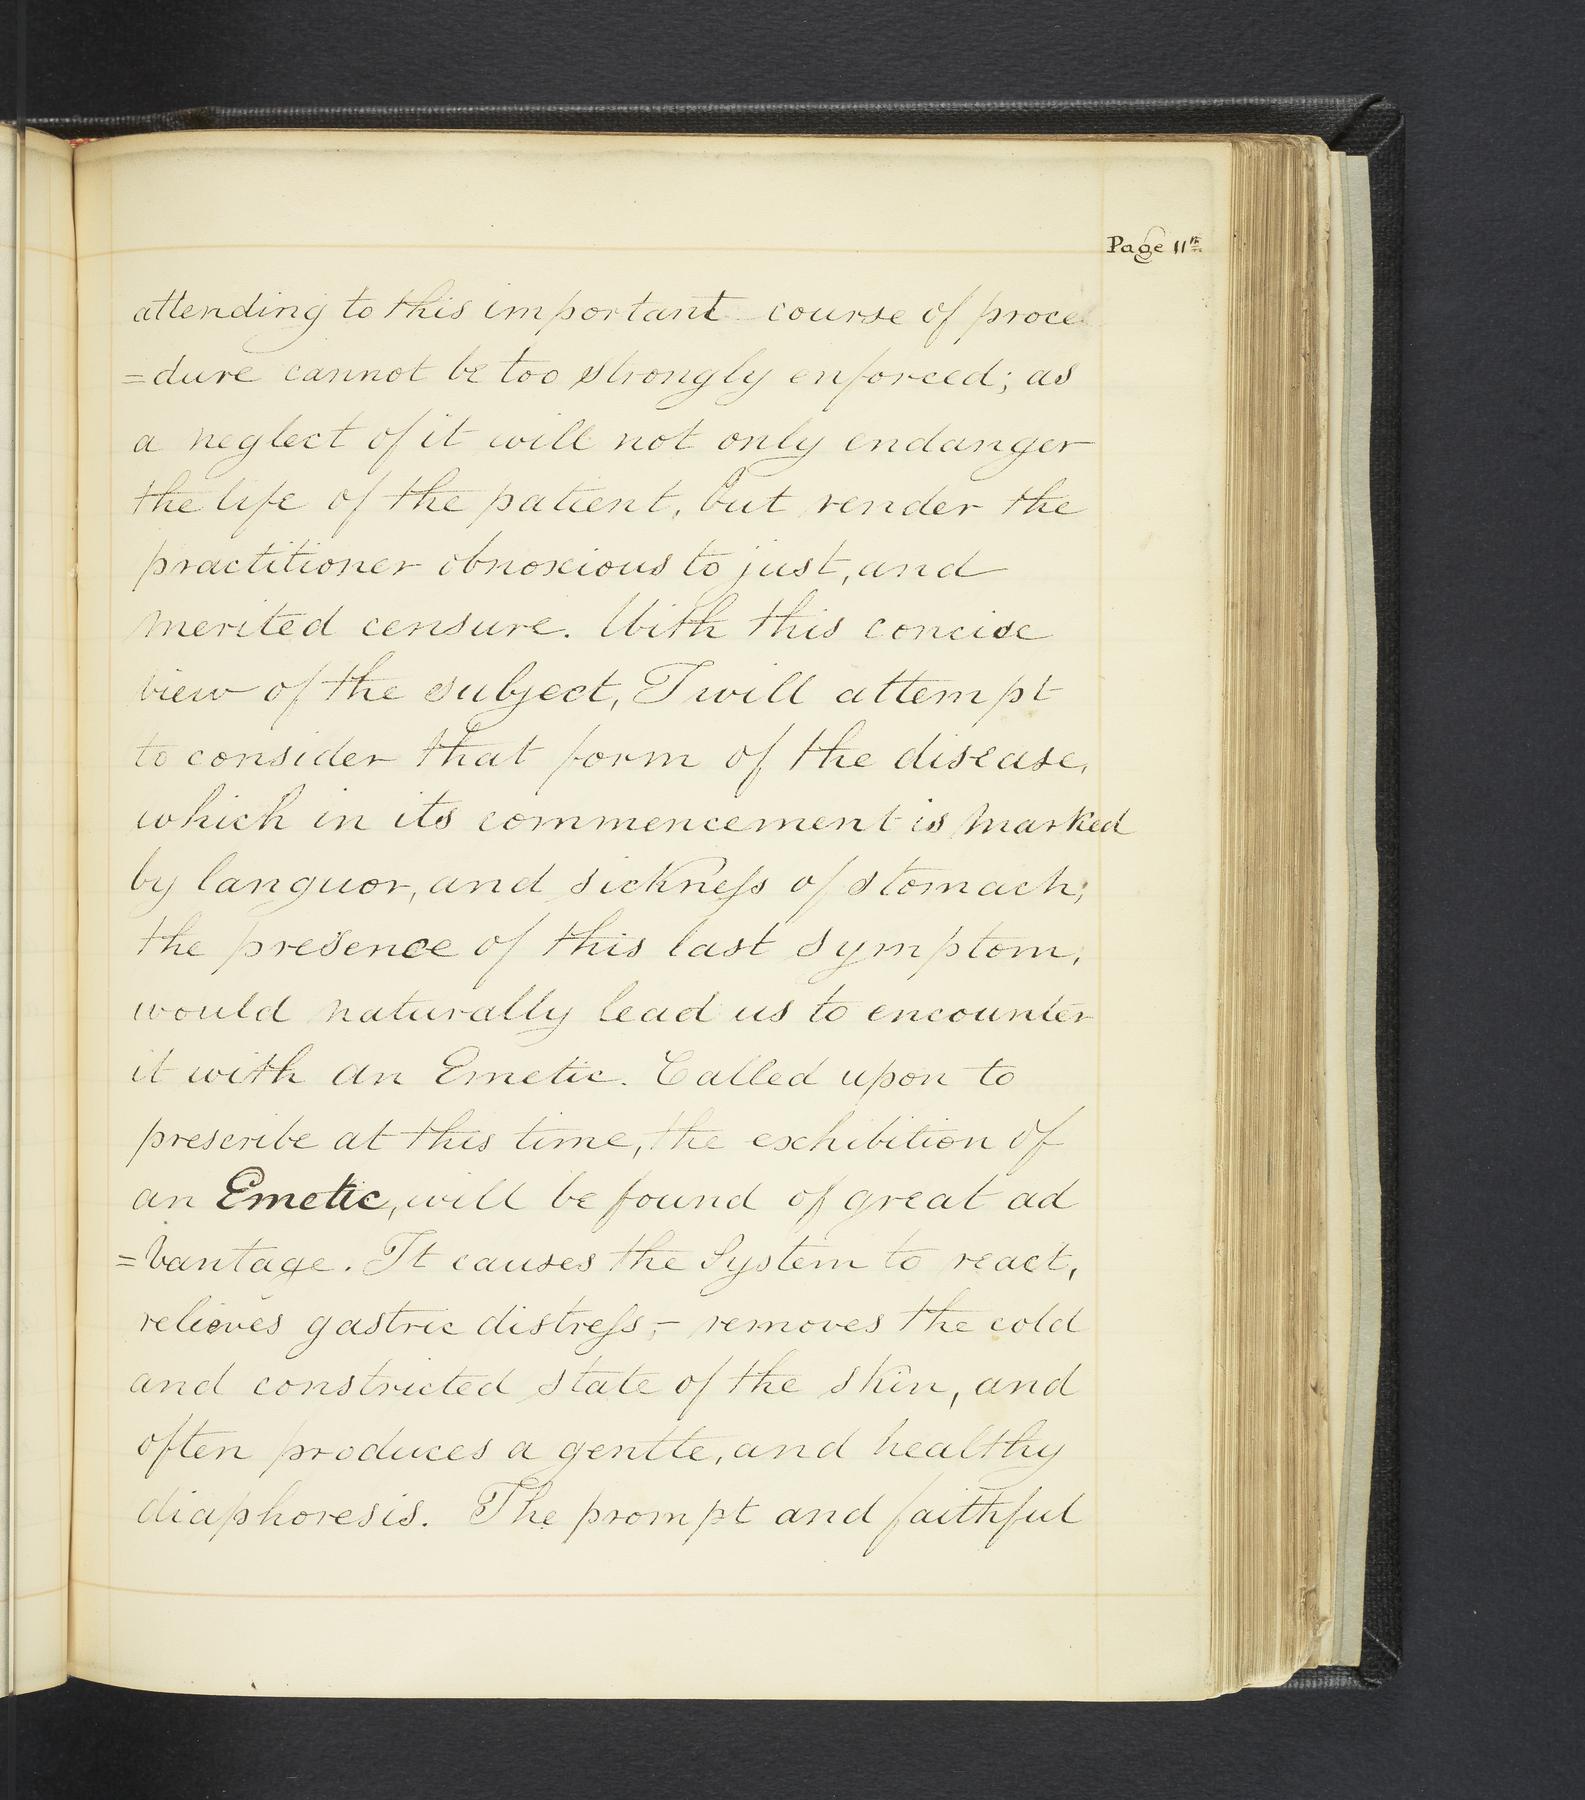 Page 11th
attending to this important course of proce
=dure cannot be too strongly enforced; as
a neglect of it will not only endanger
the life of the patient, but render the
practitioner obnoxious to just, and
merited censure. With this concise
view of the subject, I will attempt
to consider that form of the disease,
which in its commencement is marked
by languor, and sickneſs of stomach;
the presence of this last symptom,
would naturally lead us to encounter
it with an Emetic. Called upon to
prescribe at this time, the exhibition of
an Emetic, will be found of great ad
=vantage. It causes the System to react,
relieves gastric distreſs;- removes the cold
and constricted state of the skin, and
often produces a gentle, and healthy
diaphoresis. The prompt and faithful